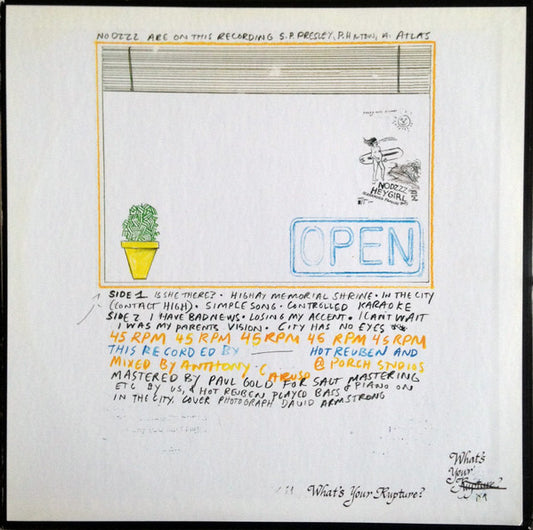 NODZZZ ARE ON THIS RECORDING S.P. PRESLEY, P. HINTON, A. ATLAS
NODZZZ
HEY GIRL
OPEN
SIDE 1 IS SHE THERE? • HIGHAY MEMORIAL SHRINE • IN THE CITY
(CONTACT HIGH) • SIMPLE SONG • CONTROLLED KARAOKE
SIDE 2 I HAVE BAD NEWS • LOSING MY ACCENT • I CANT WAIT
I WAS MY PARENTS VISION • CITY HAS NO EYES
45 RPM 45 RPM 45 RPM 45 RPM 45 RPM
THIS RECORDED BY HOT REUBEN AND
MIXED BY ANTHONY CARUSO @ PORCH STUDIOS
MASTERED BY PAUL GOLD FOR SALT MASTERING
ETC BY US, & HOT REUBEN PLAYED BASS & PIANO ON
IN THE CITY. COVER PHOTOGRAPH DAVID ARMSTRONG
What's
Your
Rupture?
What's Your Rupture?